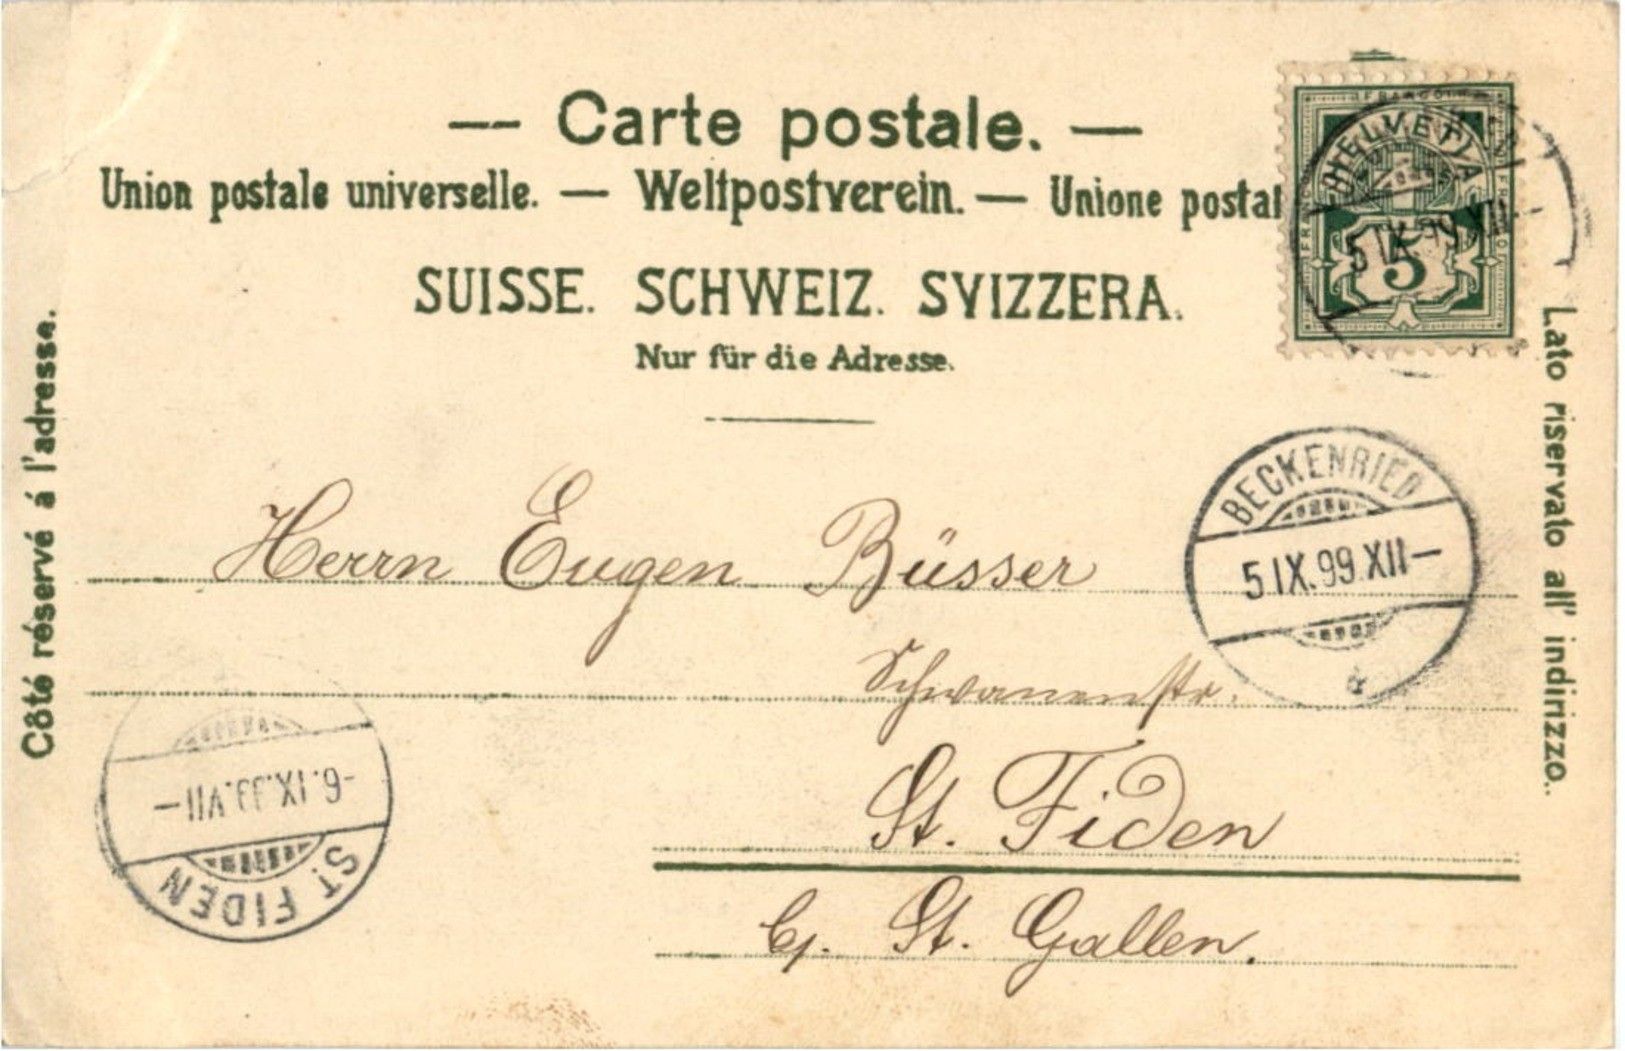 — Carte postale. —
Union postale universelle. — Weltpostverein. — Unione postal
SUISSE. SCHWEIZ. SVIZZERA.
Nur für die Adresse.
Côté réservé á l'adresse.
Lato riservato all' indirizzo.
FRANCO
HELVETIA
5
5 IX. 99 XII—
BECKENRIED
5 IX. 99 XII—
Herrn Eugen Büsser
Schwanenstr.
St. Fiden
b/. St. Gallen.
-6.IX.99.VII—
ST. FIDEN